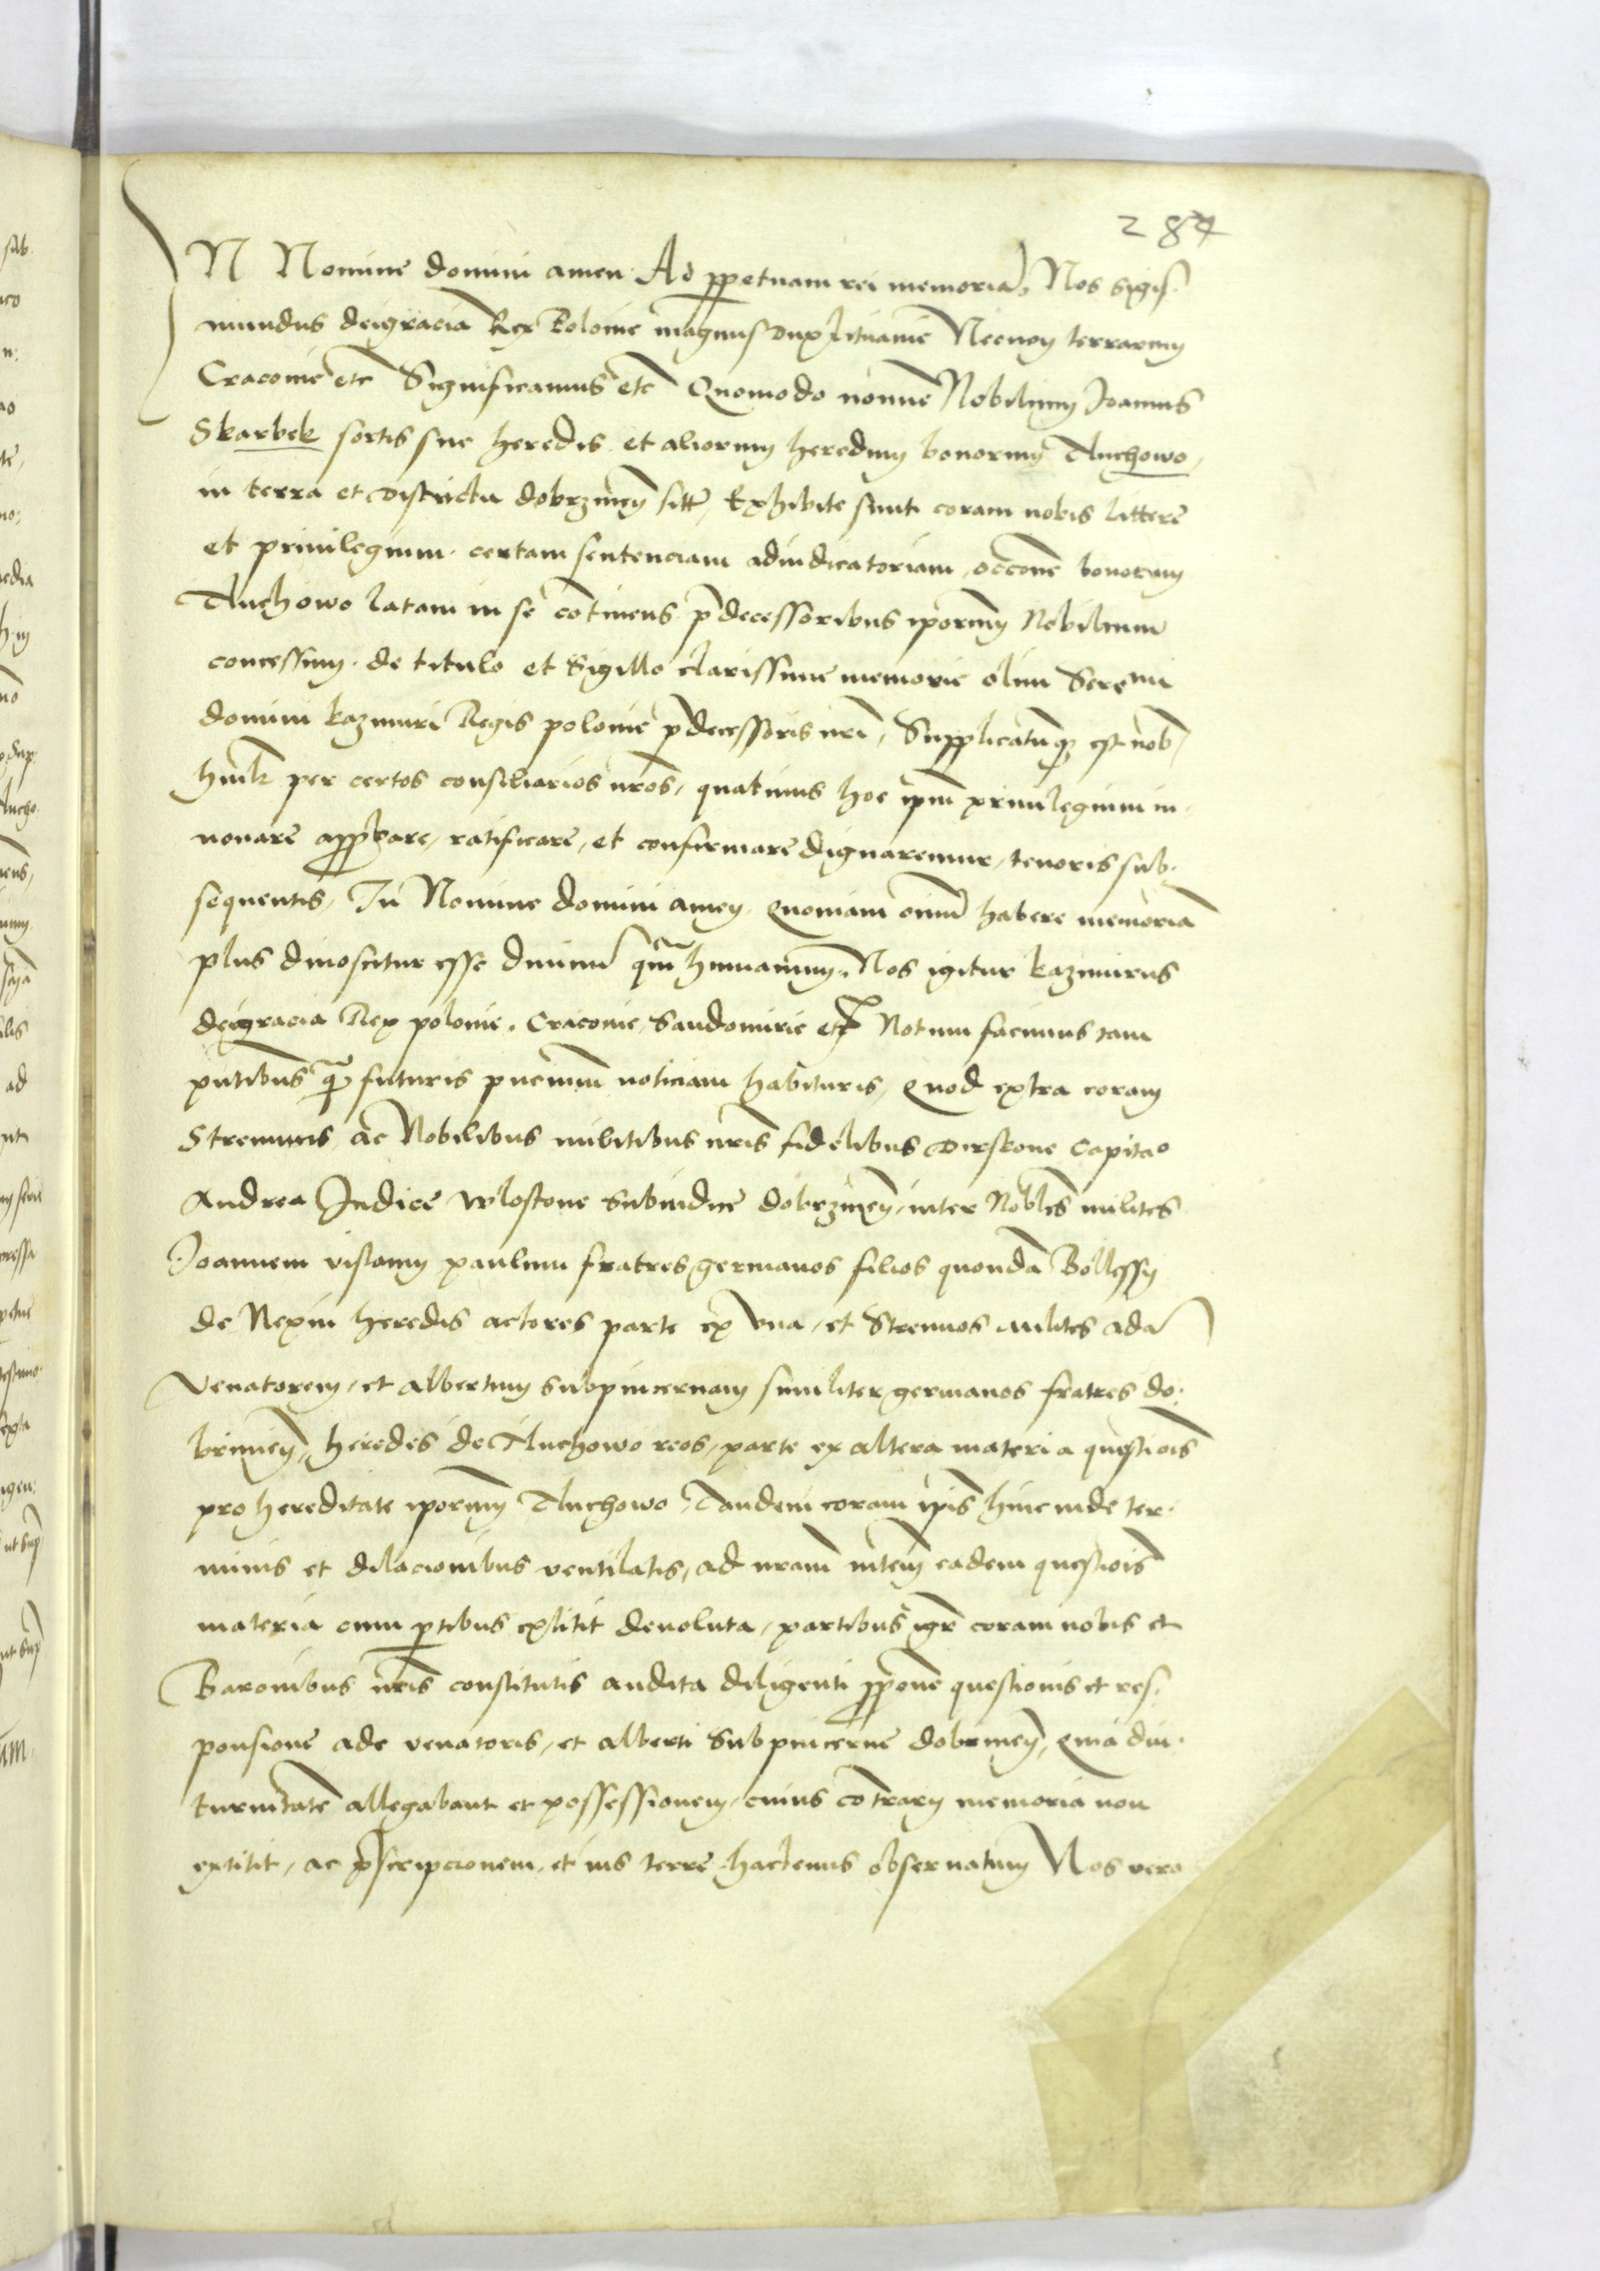 284
IN Nomine domini amen Ad ppetuam rei memoriā, Nos Sigis-
mundus dei gracia Rex Polonie magnus dux Lituanie Necnon terrarum
Cracovie etc Significamus etc Quomodo noīne Nobilium Joannis
Skarbek sortis sue heredis et aliorum heredum bonorum Tluchowo,
in terra et districtu dobrzineñ sitt, Exhibite sunt coram nobis littere
et privilegium certam sentenciam adiudicatoriam, occōne bonorum
Tluchowo latam in se cōtinens p̄decessoribus ip̄orum Nobilium
concessum de titulo et Sigillo clarissime memorie olim Sereni
domini kazimiri Regis polonie p̄decessoris nr̄i, Supplicatūq; est nob,
per certos consiliarios nr̄os, quatinus hoc ip̄m privilegium in-
novare approbare, ratificare, et confirmare dignaremur, tenoris sub-
sequentis, In Nomine domini amen Quoniam oīm habere memoriā
plus dinoscitur esse divinū qm̄ humanum, Nos igitur kazimirus
dei gracia Rex polonie, Cracovie, Sandomirie etc Notum facimus tam
pn̄tibus q̄ futuris pn̄cium noticiam habituris, Quod extra coram
Strenuis ac Nobilibus militibus nr̄is fidelibus Capitao
Andrea Judice wlostone Subiudice dobrzineñ, inter Nobles milites
Joannem paulum fratres germanos filios quondā
de heredis actores parte ex una, et Strenuos milites adā
Venatorem, et albertum subpincernam similiter germanos fratres do-
brineñ, heredes de Tluchowo reos, parte ex altera materia questiois
pro hereditate ip̄orum Tluchowo, Tandem coram ip̄is hinc inde ter-
minis et dilacionibus ventilatis, ad nram eadem questiois
materia cum p̄tibus extitit devoluta, partibus igr̄ coram nobis et
Baronibus nr̄is constitutis audita diligenti pponē questionis et res-
ponsione ade venatoris, et alberti Subpincerne dobrineñ, Quia diu-
turnitatē allegabant et possessionem, cuius cōtrary memoria non
extitit, ac p̄scripcionem, et ius terre hactenus observatum Nos vero